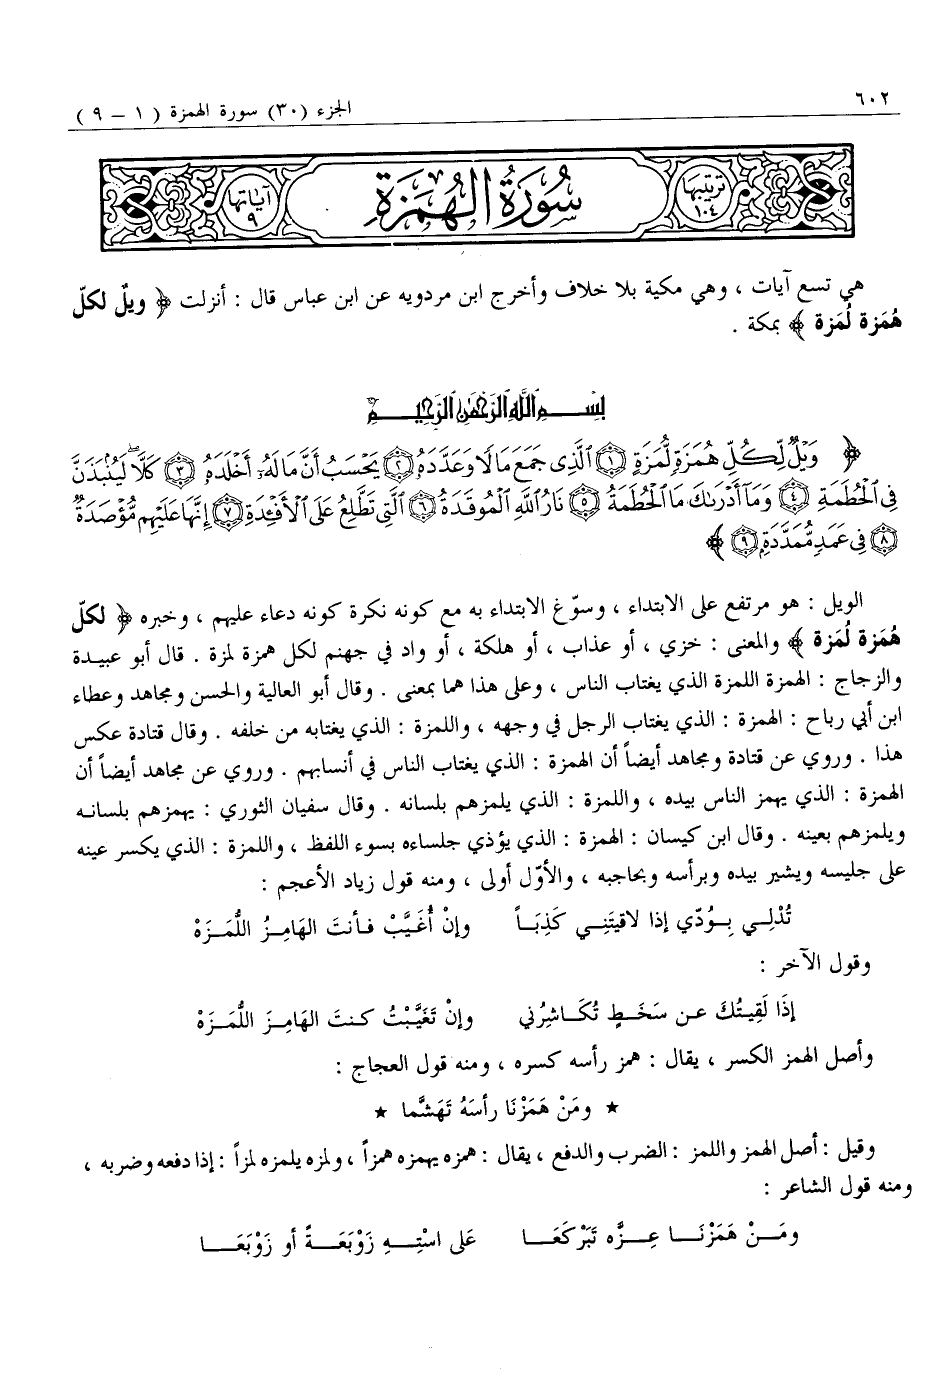 ٦٠٢
الجزء (٣٠) سورة الهمزة ( ١ – ٩ )
ترتيبها ١٠٤
سُورَةُ الهُمَزَةِ
آياتها ٩
هي تسع آيات ، وهي مكية بلا خلاف وأخرج ابن مردويه عن ابن عباس قال : أنزلت ﴿ ويلٌ لكلّ
هُمَزة لُمَزة ﴾ بمكة .
بِسْمِ اللَّهِ الرَّحْمَٰنِ الرَّحِيمِ
﴿ وَيْلٌ لِّكُلِّ هُمَزَةٍ لُّمَزَةٍ ١ ٱلَّذِى جَمَعَ مَالًا وَعَدَّدَهُۥ ٢ يَحْسَبُ أَنَّ مَالَهُۥٓ أَخْلَدَهُۥ ٣ كَلَّا ۖ لَيُنۢبَذَنَّ
فِى ٱلْحُطَمَةِ ٤ وَمَآ أَدْرَىٰكَ مَا ٱلْحُطَمَةُ ٥ نَارُ ٱللَّهِ ٱلْمُوقَدَةُ ٦ ٱلَّتِى تَطَّلِعُ عَلَى ٱلْأَفْـِٔدَةِ ٧ إِنَّهَا عَلَيْهِم مُّؤْصَدَةٌ
٨ فِى عَمَدٍ مُّمَدَّدَةٍۭ ٩ ﴾
الويل : هو مرتفع على الابتداء ، وسوّغ الابتداء به مع كونه نكرة كونه دعاء عليهم ، وخبره ﴿ لكلّ
هُمَزة لُمَزة ﴾ والمعنى : خزي ، أو عذاب ، أو هلكة ، أو واد في جهنم لكل همزة لمزة . قال أبو عبيدة
والزجاج : الهمزة اللمزة الذي يغتاب الناس ، وعلى هذا هما بمعنى . وقال أبو العالية والحسن ومجاهد وعطاء
ابن أبي رباح : الهمزة : الذي يغتاب الرجل في وجهه ، واللمزة : الذي يغتابه من خلفه . وقال قتادة عكس
هذا . وروي عن قتادة ومجاهد أيضاً أن الهمزة : الذي يغتاب الناس في أنسابهم . وروي عن مجاهد أيضاً أن
الهمزة : الذي يهمز الناس بيده ، واللمزة : الذي يلمزهم بلسانه . وقال سفيان الثوري : يهمزهم بلسانه
ويلمزهم بعينه . وقال ابن كيسان : الهمزة : الذي يؤذي جلساءه بسوء اللفظ ، واللمزة : الذي يكسر عينه
على جليسه ويشير بيده وبرأسه وبحاجبه ، والأوّل أولى ، ومنه قول زياد الأعجم :
تُدْلِي بِوُدّي إذا لاقيتَنِي كَذِبَاً وإنْ أُغَيَّبْ فأنتَ الهَامِزُ اللُّمَزَهْ
وقول الآخر :
إذَا لَقِيتُكَ عن سَخَطٍ تُكَاشِرُني وإنْ تَغَيَّبْتُ كنتَ الهَامِزَ اللُّمَزَهْ
وأصل الهمز الكسر ، يقال : همز رأسه كسره ، ومنه قول العجاج :
★ ومَنْ هَمَزْنَا رأسَهُ تَهَشَّما ★
وقيل : أصل الهمز واللمز : الضرب والدفع ، يقال : همزه يهمزه همزاً ، ولمزه يلمزه لمزاً : إذا دفعه وضربه ،
ومنه قول الشاعر :
ومَنْ هَمَزْنَا عِزَّه تَبَرْكَعَا عَلى اسْتِهِ زَوْبَعَةً أو زَوْبَعَا